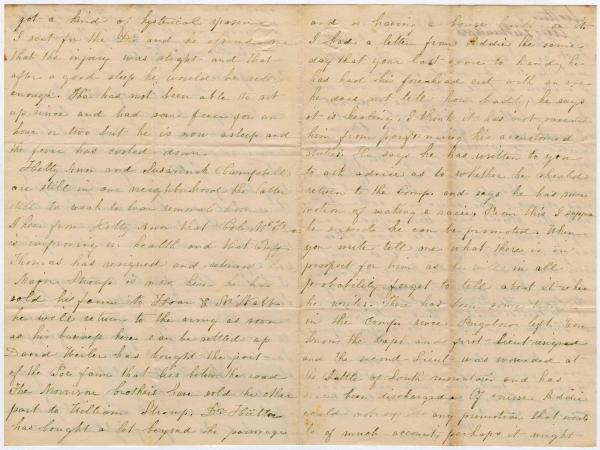 got a kind of hysterical spasm
I sent for the Dr and he assured me
that the injury was slight and that
after a good sleep he would be well
enough. He has not been able to sit
up since and had some fever for an
hour or two but he is now asleep and
the fever has cooled down.
Hetty Ann and Susannah Campbell
are still in our neighborhood the latter
still to weak to bear removal
I hear from Hetty Ann that Col. Mc
is improving in health and that
Thomas has resigned and returned
Major Stroup is now here he has
sold his farm to Hoar & McNabb
he will return to the army as soon
as his business here can be settled up
David Weiler has bought the part
of the Poe farm that lies below the road
The Morrison brothers have sold the other
part to William Stroup. Dr Hutton
has bought a lot beyond the parsonage
and is having a house built on it
I had a letter from Addie the same
day that your last came to hand, he
has had his forehead cut with an axe
he does not tell how badly, he says
it is healing. I think it has not prevented
him from performing his accustomed
duties. He says he has written to you
to ask advice as to whether he should
return to the Comp. and says he has some
notion of making a raise. From this I suppose
he expects he can be promoted. When
you write tell me what there is in
prospect for him as he will in all
probability forget to tell about it when
he writes. There has been some
in the Comp. since left,
the Capt and first Lieut resigned
and the second Lieut was wounded at
the Battle of South mountain and has
been discharged. Of course Addie
could not get any promotion that would
be of much account, perhaps it might